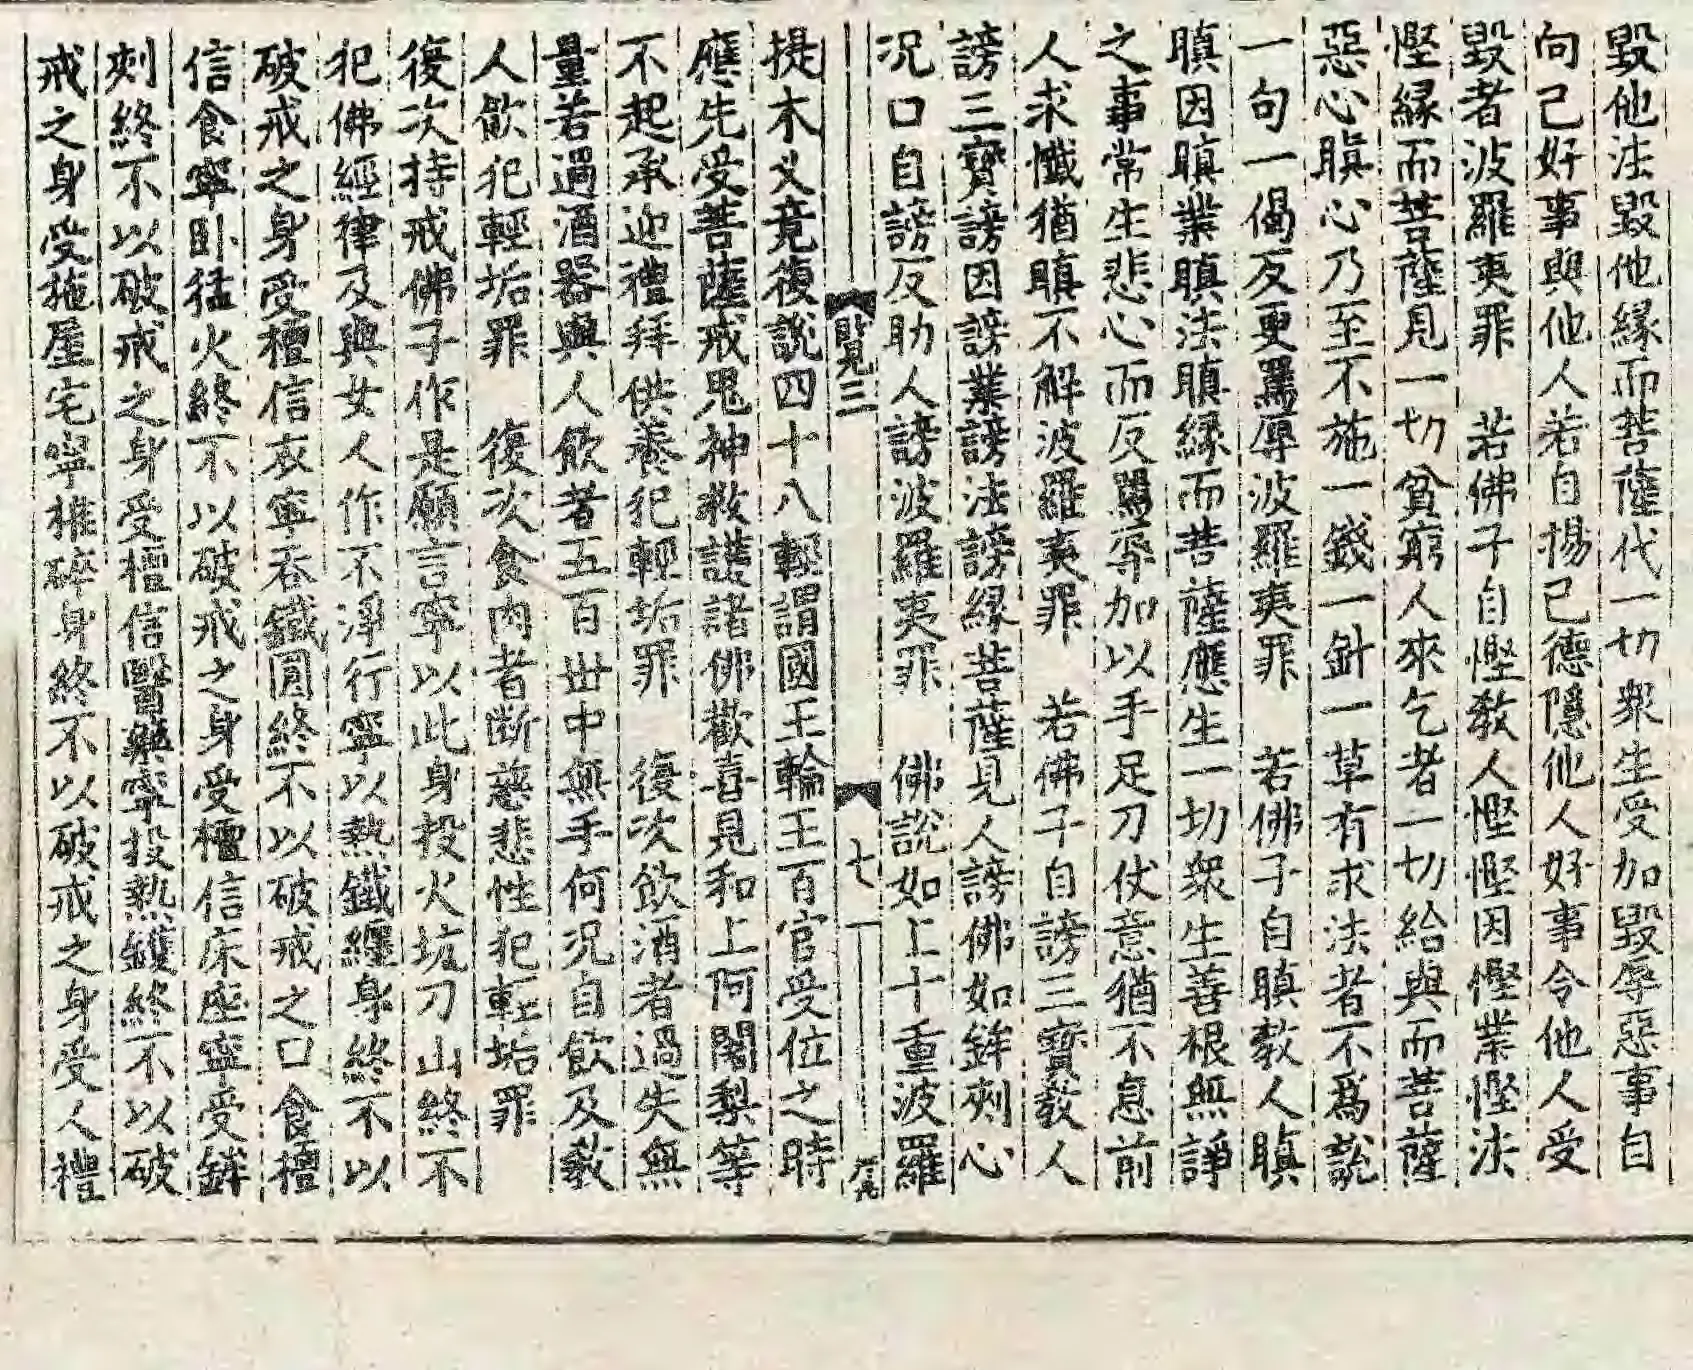 毀他法毀他緣而菩薩代一切衆生受加毀辱惡事自
向己好事與他人若自揚己德隱他人好事令他人受
毀者波羅夷罪　若佛子自慳敎人慳慳因慳業慳法
慳緣而菩薩見一切貧窮人來乞者一切給與而菩薩
惡心瞋心乃至不施一錢一針一草有求法者不爲說
一句一偈反更罵辱波羅夷罪　若佛子自瞋敎人瞋
瞋因瞋業瞋法瞋緣而菩薩應生一切衆生善根無諍
之事常生悲心而反罵辱加以手足刀仗意猶不息前
人求懺猶瞋不解波羅夷罪　若佛子自謗三寶敎人
謗三寶謗因謗業謗法謗緣菩薩見人謗佛如鉾刺心
況口自謗反助人謗波羅夷罪　佛說如上十重波羅
　三　七
提木叉竟復說四十八輕謂國王輪王百官受位之時
應先受菩薩戒鬼神救護諸佛歡喜見和上阿闍梨等
不起承迎禮拜供養犯輕垢罪　復次飮酒者過失無
量若過酒器與人飮者五百世中無手何況自飮及敎
人飮犯輕垢罪　復次食肉者断慈悲性犯輕垢罪
復次持戒佛子作是願言寧以此身投火坑刀山終不
犯佛經律及與女人作不淨行寧以熱鐵纒身終不以
破戒之身受檀信衣寧呑鐵圓終不以破戒之口食檀
信食寧臥猛火終不以破戒之身受檀信床座寧受鉾
刺終不以破戒之身受檀信醫藥寧投熱鑊終不以破
戒之身受施屋宅寧椎碎身終不以破戒之身受人禮